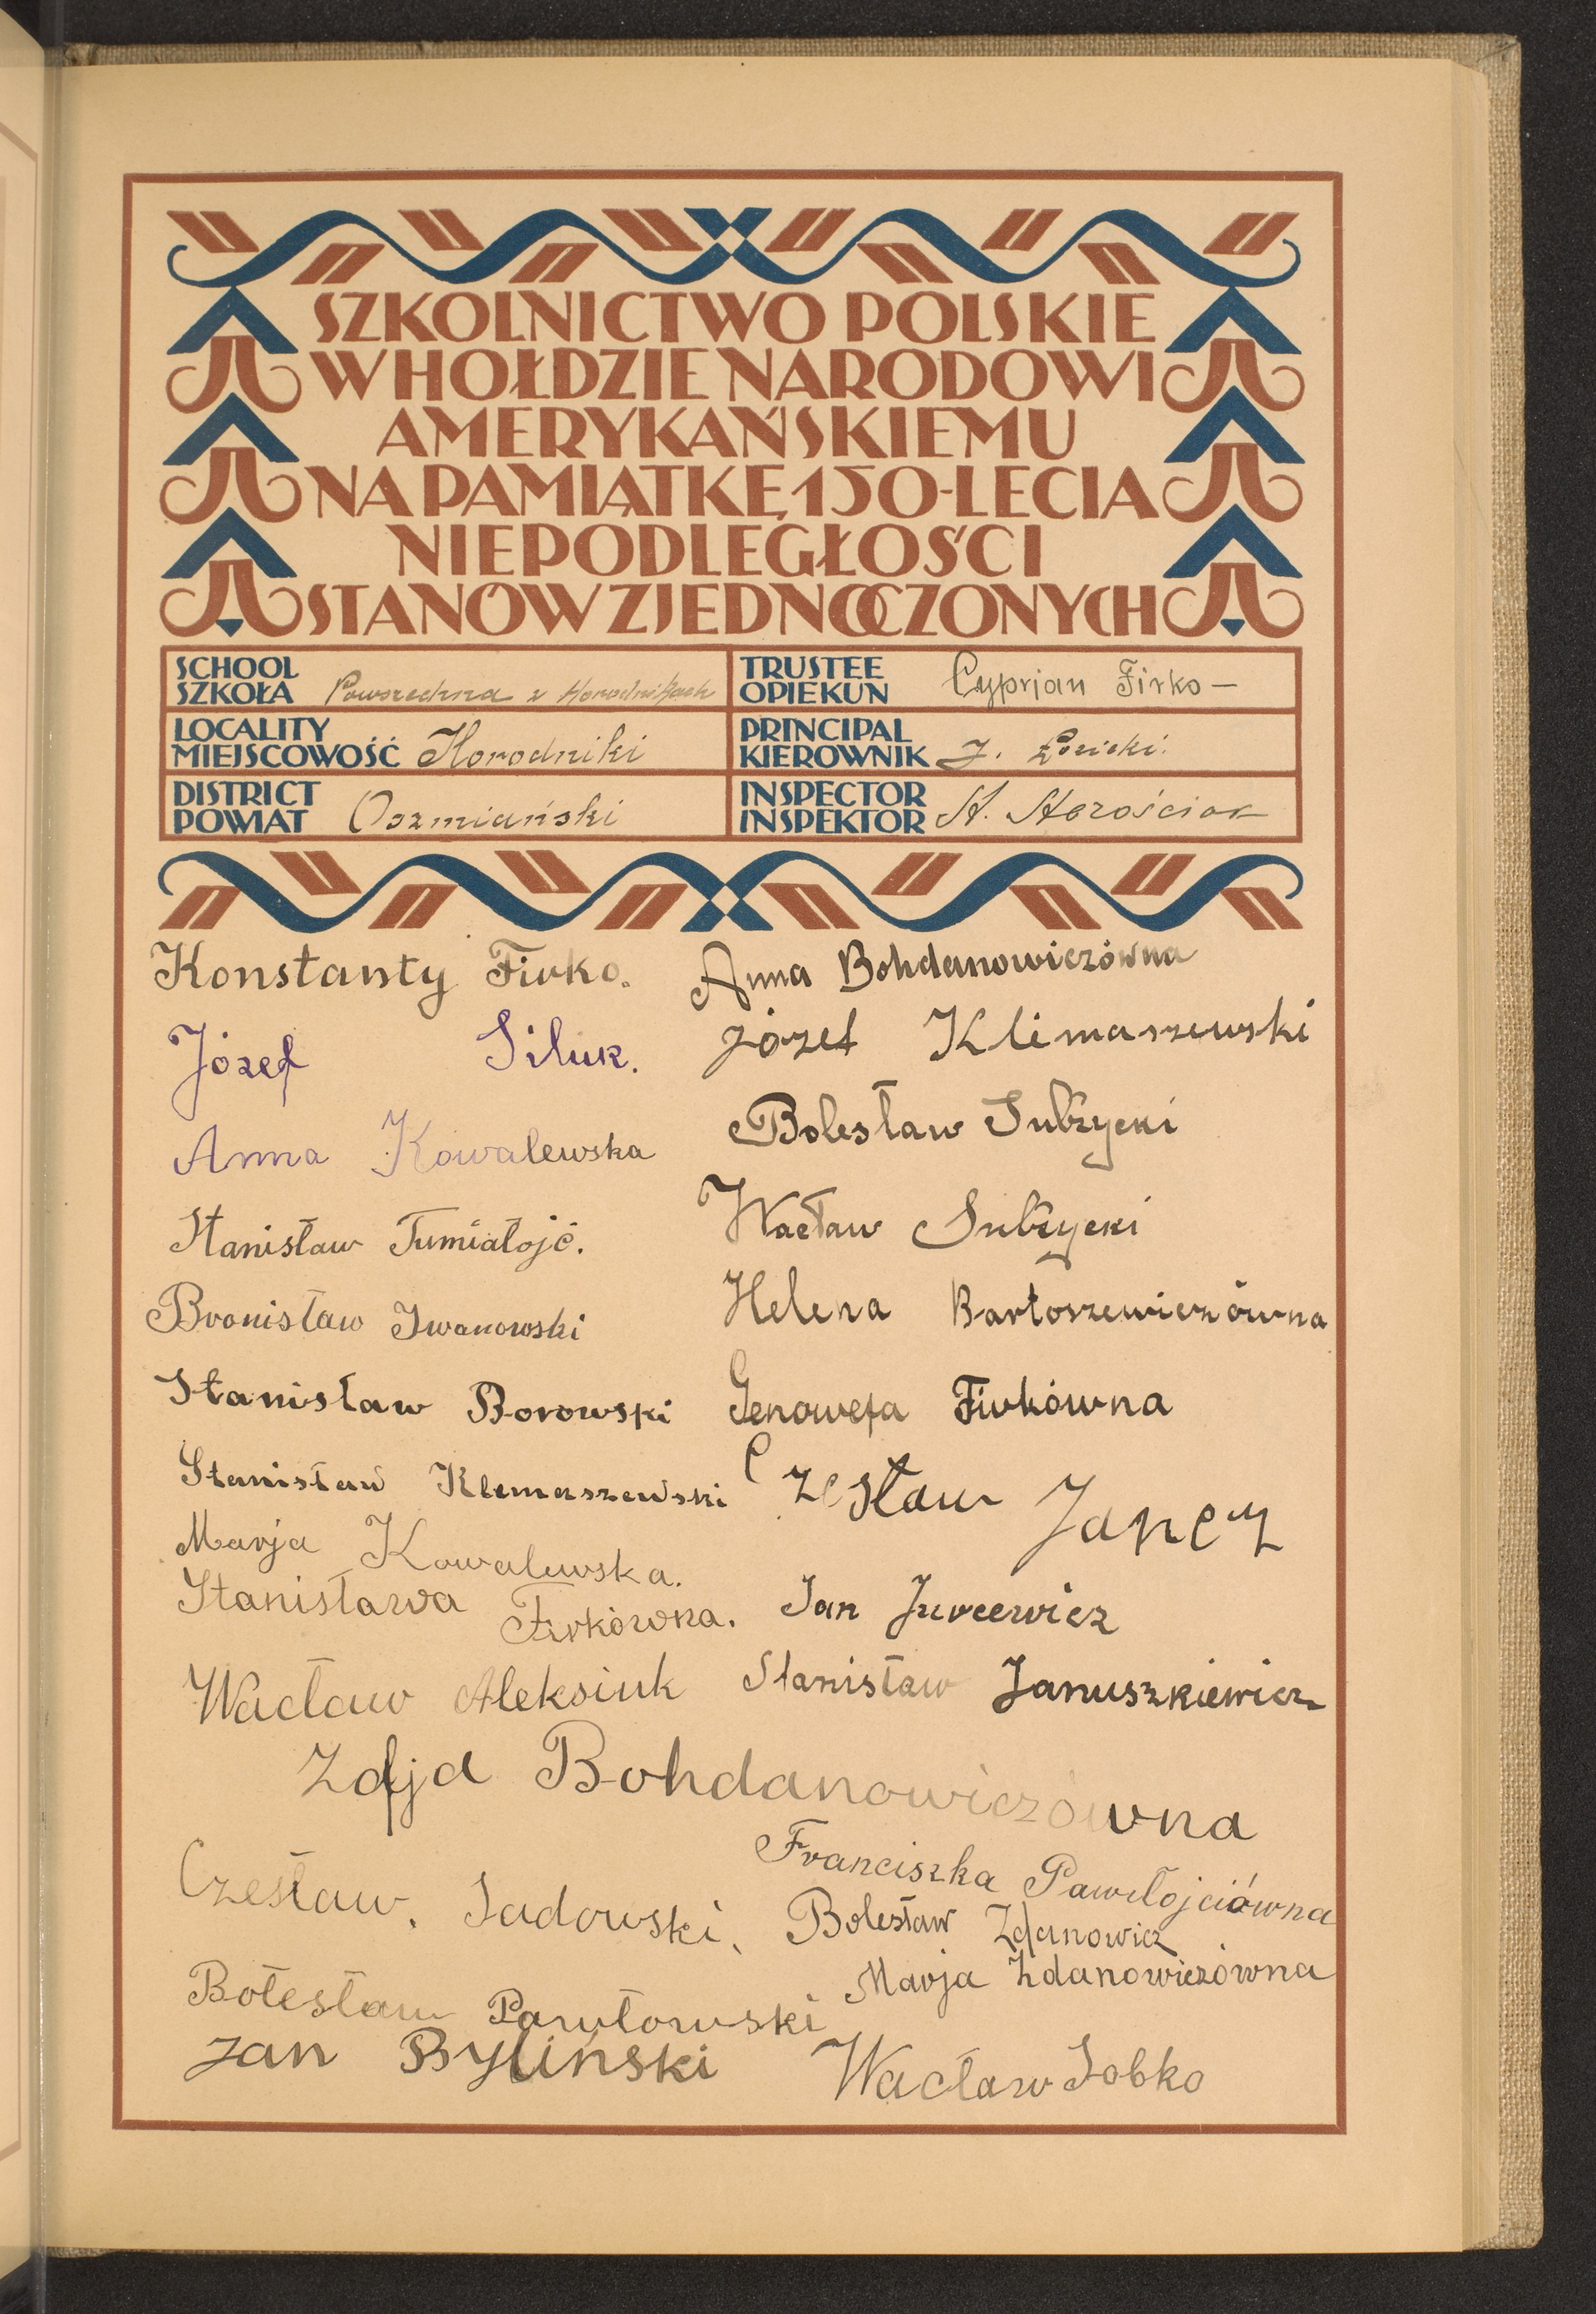 SZKOLNICTWO POLSKIE
W HOŁDZIE NARODOWI
AMERYKAŃSKIEMU
NA PAMIĄTKĘ 150-LECIA
NIEPODLEGŁOŚCI
STANÓW ZJEDNOCZONYCH
SCHOOL
SZKOŁA Powszechna w Horodnikach
TRUSTEE
OPIEKUN Cyprian Firko —
LOCALITY
MIEJSCOWOŚĆ Horodniki
PRINCIPAL
KIEROWNIK J.
DISTRICT
POWIAT Oszmiański
INSPECTOR
INSPEKTOR St. Starościak
Konstanty Firko.
Józef Siluk.
Anna Kowalewska
Stanisław Tumiałojć.
Bronisław Iwanowski
Stanisław Borowski
Stanisław Klemaszewski
Marja Kowalewska.
Stanisława Firkówna.
Wacław Aleksiuk
Anna Bohdanowiczówna
Józef Klimaszewski
Bolesław Subzycki
Wacław Subzycki
Helena Bartoszewiczówna
Genowefa Firkówna
Czesław Jancz
Jan Jurcewicz
Stanisław Januszkiewicz
Zofja Bohdanowiczówna
Czesław. Sadowski.
Bolesław Pawłowski
Jan Byliński
Franciszka Pawełojciówna
Bolesław Zdanowicz
Marja Zdanowiczówna
Wacław Sobko